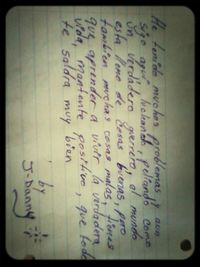 He tenido muchos problemas y aun
sigo aqui luchando, peliando como
un verdadero guerrero, el mundo
esta lleno de cosas buenas, pero
tambien muchas cosas malas, tienes
que aprender a vivir la verdadera
vida, mantente positivo, que todo
te saldra muy bien
by
J-Danny